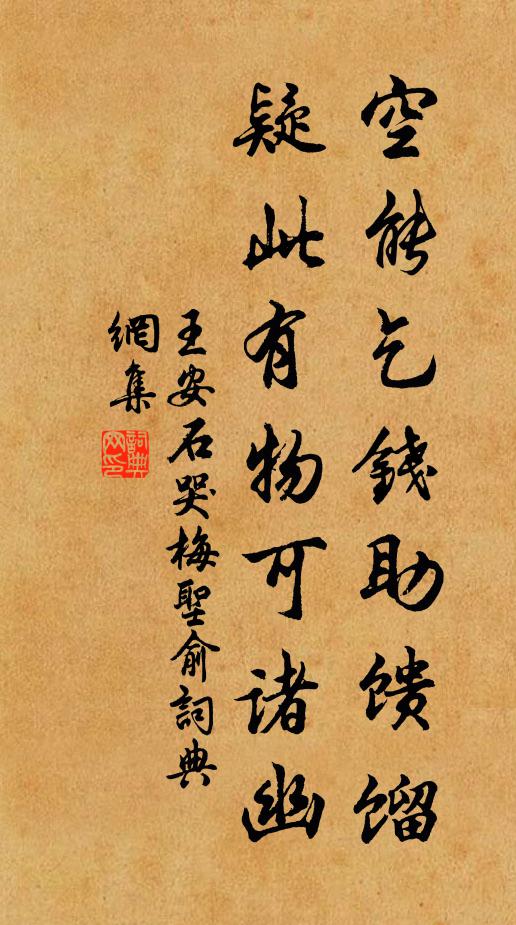 空能乞錢助馈馏
疑此有物可诸幽
王安石哭梅聖俞詞典
網集
詞典網印